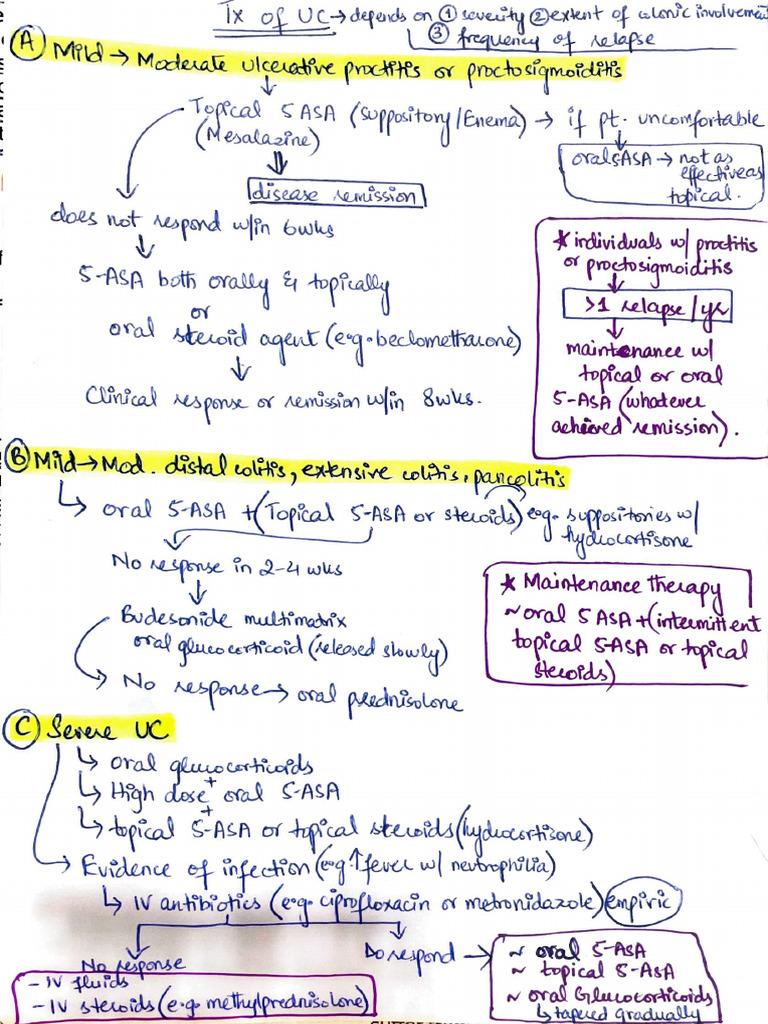 Tx of UC → depends on ① severity ② extent of colonic involveme
③ frequency of relapse
Ⓐ Mild → Moderate ulcerative proctitis or proctosigmoiditis
Topical 5 ASA (suppository/Enema) → if pt. uncomfortable
(Mesalazine)
oral 5ASA → not as
effective as
topical.
disease remission
does not respond w/in 6wks
5-ASA both orally & topically
or
oral steroid agent (e.g. beclomethasone)
Clinical response or remission w/in 8wks.
* individuals w/ proctitis
or proctosigmoiditis
>1 relapse/yr
maintenance w/
topical or oral
5-ASA (whatever
achieved remission).
Ⓑ Mild → Mod. distal colitis, extensive colitis, pancolitis
oral 5-ASA + (Topical 5-ASA or steroids) e.g. suppositories w/
hydrocortisone
No response in 2-4 wks
Budesonide multimatrix
oral glucocorticoid (released slowly)
No response → oral prednisolone
* Maintenance therapy
~ oral 5 ASA + (intermittent
topical 5-ASA or topical
steroids)
Ⓒ Severe UC
oral glucocorticoids
+
High dose oral 5-ASA
+
topical 5-ASA or topical steroids (hydrocortisone)
Evidence of infection (e.g. ↑fever w/ neutrophilia)
IV antibiotics (e.g. ciprofloxacin or metronidazole) empiric
No response
- IV fluids
- IV steroids (e.g. methylprednisolone)
Do respond →
~ oral 5-ASA
~ topical 5-ASA
~ oral Glucocorticoids
↳ tapered gradually